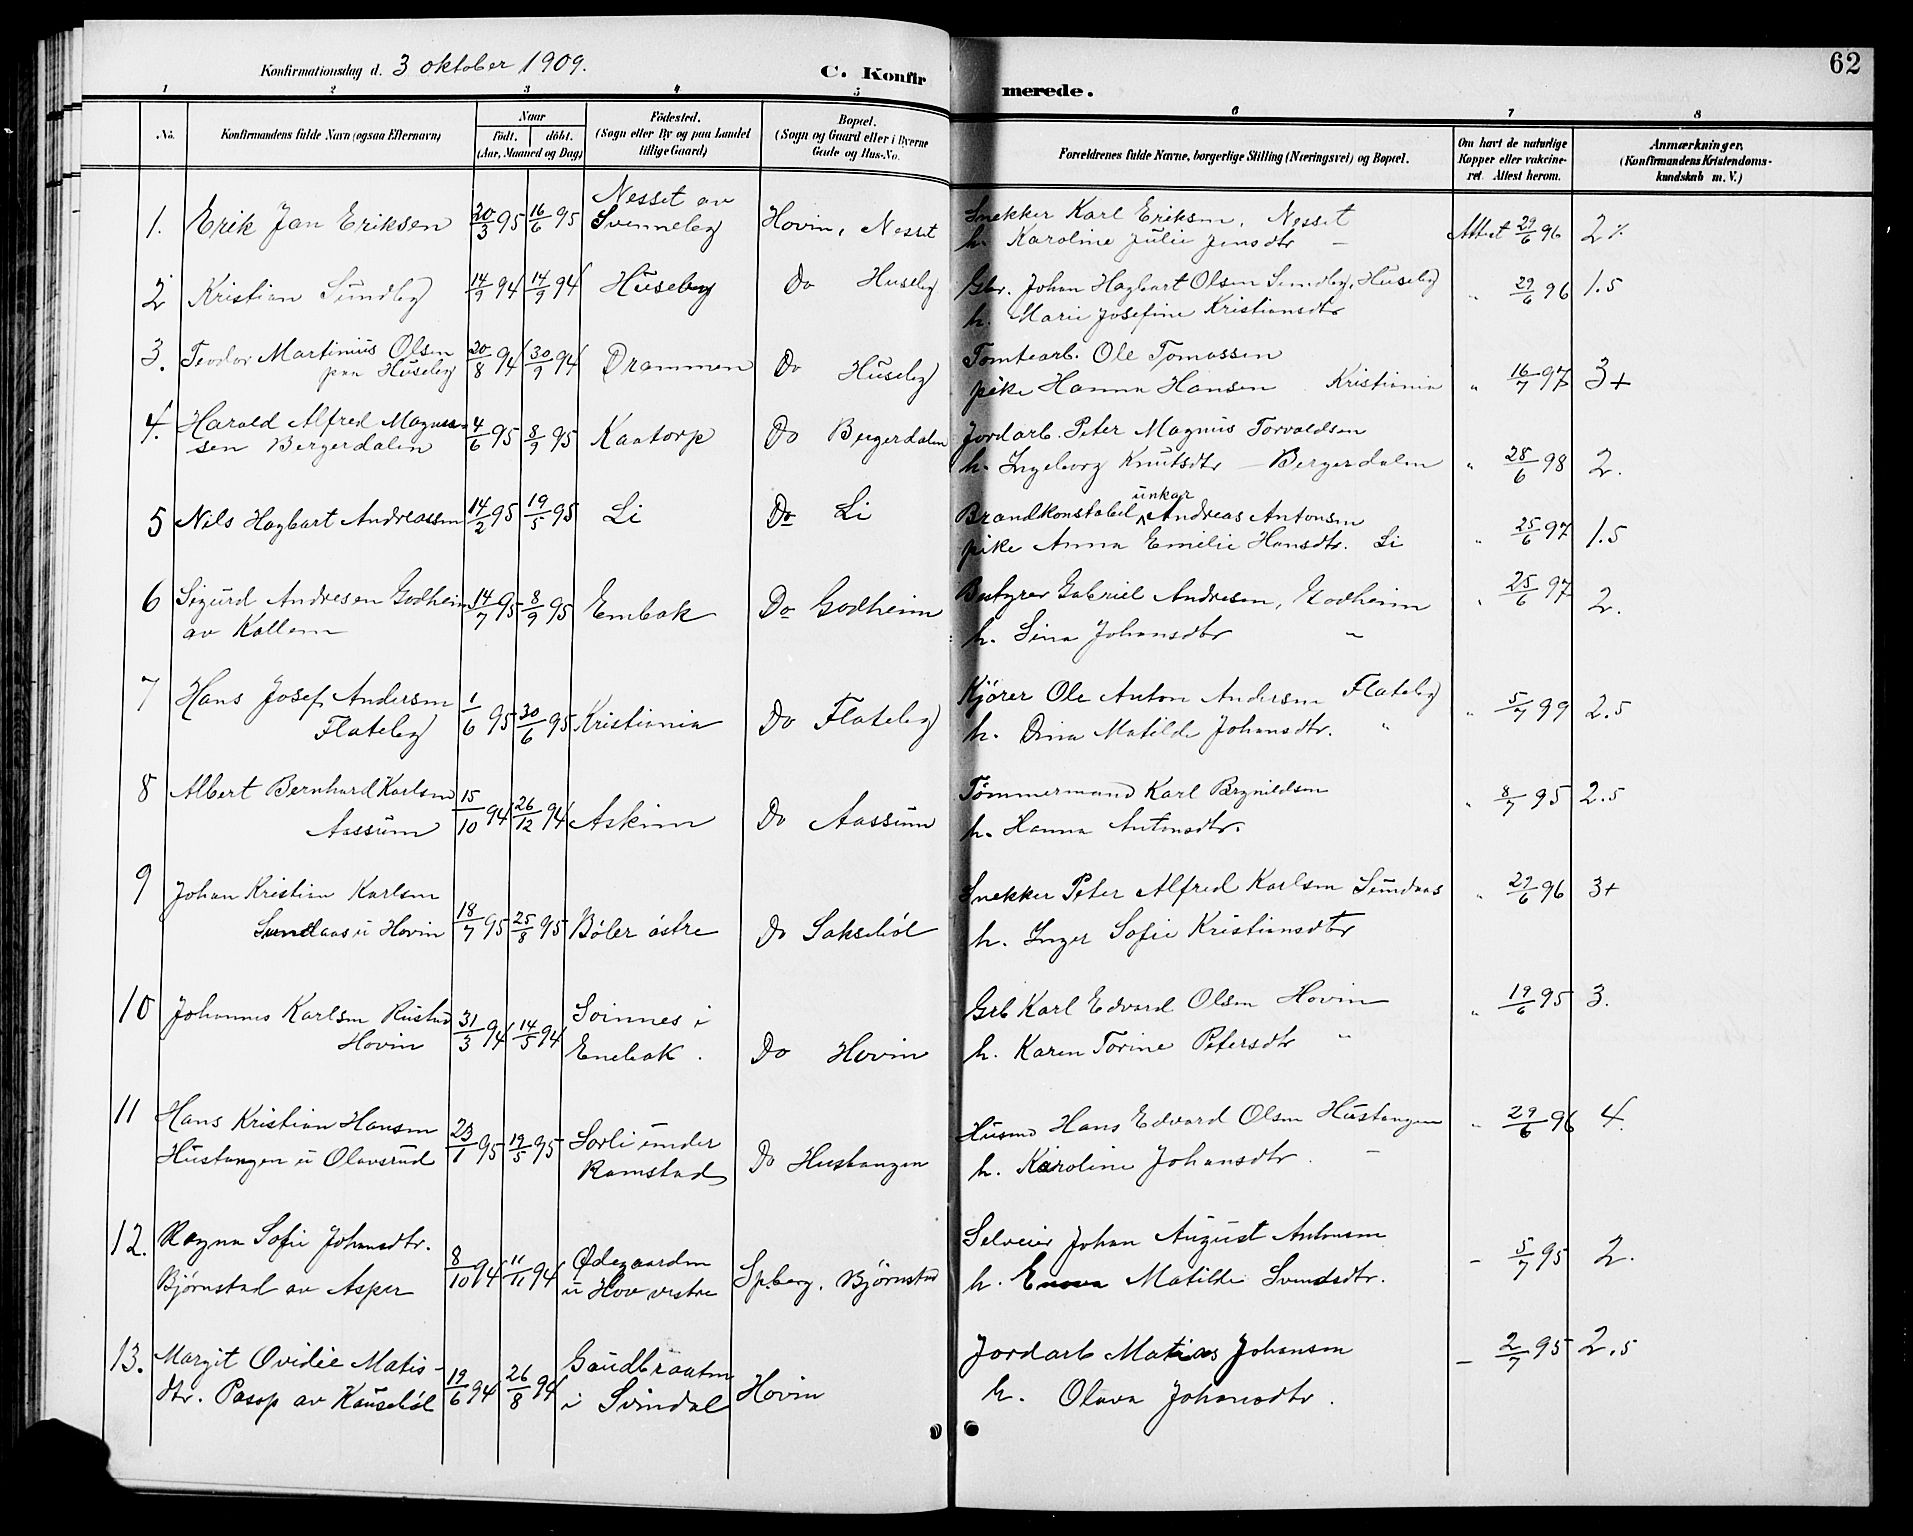 62
Konfirmationsdag d. 3 oktober 1909.
C. Konfir
merede.
1 2 3 4 5 6 7 8
No. Konfirmandens fulde Navn (ogsaa Efternavn)
Naar
født. døbt.
(Aar, Maaned og Dag)
Fødested.
(Sogn eller By og paa Landet
tillige Gaard)
Bopæl.
(Sogn og Gaard eller i Byerne
Gade og Hus-No.
Forældrenes fulde Navne, borgerlige Stilling (Næringsvei) og Bopæl.
Om havt de naturlige
Kopper eller vakcine-
ret. Attest herom.
Anmærkninger.
(Konfirmandens Kristendoms-
kundskab m. V.)
1. Erik Jan Eriksen 20/3 95 16/6 95 Nesset av
Svenneby Hovin, Nesset Snekker Karl Eriksen, Nesset
h. Karoline Julie Jensdtr — Attest 29/6 96 2%
2 Kristian Sundby 14/9 94 14/9 94 Huseby Do Huseby Gbr. Johan Hagbart Olsen Sundby, Huseby
h. Marie Josefine Kristiansdtr " 29/6 96 1.5
3. Teodor Martinius Olsen
paa Huseby 20/8 94 30/9 94 Drammen Do Huseby Tomtearb. Ole Tomassen
pike Hanna Hansen Kristiania " 16/7 97 3+
4. Harald Alfred Magnus-
sen Bergerdalen 4/6 95 8/9 95 Kaatorp Do Bergerdalen Jordarb. Peter Magnus Torvaldsen
h. Ingeborg Knutsdtr — Bergerdalen " 28/6 98 2.
5 Nils Hagbart Andreassen 14/2 95 19/5 95 Li Do Li Brandkonstabel unkar Andreas Antonsen
pike Anna Emilie Hansdtr. Li " 25/6 97 1.5
6 Sigurd Andresen Godheim
av Kallem 14/7 95 8/9 95 Enebak Do Godheim Bestyrer Gabriel Andresen, Godheim
h. Lina Johansdtr " " 25/6 97 2.
7 Hans Josef Andersen
Flateby 1/6 95 30/6 95 Kristiania Do Flateby Kjører Ole Anton Andersen Flateby
h. Dina Matilde Johansdtr. " " 5/7 99 2.5
8 Albert Bernhard Karlsen
Aassum 15/10 94 26/12 94 Askim Do Aassum Tømmermand Karl Brynildsen
h. Hanna Antonsdtr. " 8/7 95 2.5
9 Johan Kristian Karlsen
Sundaas u Hovin 18/7 95 25/8 95 Bøler østre Do Saksebøl Snekker Peter Alfred Karlsen Sundaas
h. Inger Sofie Kristiansdtr " 29/6 96 3+
10 Johannes Karlsen Rustad
Hovin 31/3 94 14/5 94 Soinnes i
Enebak. Do Hovin Grb Karl Edvard Olsen Hovin
h. Karen Torine Petersdtr " " 19/6 95 3.
11 Hans Kristian Hansen
Hustangen u Olavsrud 23/1 95 19/5 95 Sorli under
Ramstad Do Hustangen Husmd Hans Edvard Olsen Hustangen
h. Karoline Johansdtr. — " 29/6 96 4.
12. Ragna Sofie Johansdtr.
Bjørnstad av Asper 8/10 94 11/11 94 Ødegaarden
u Hov vestre Spberg. Bjørnstad Selveier Johan August Antonsen
h. Emma Matilde Svendsdtr. — 5/7 95 2.
13. Margit Ovidie Matis-
dtr. Pasop av Kausebøl 19/6 94 26/8 94 Gaudbraaten
i Svindal Hovin Jordarb Matias Johansen
h. Olava Johansdtr. — 2/7 95 2.5